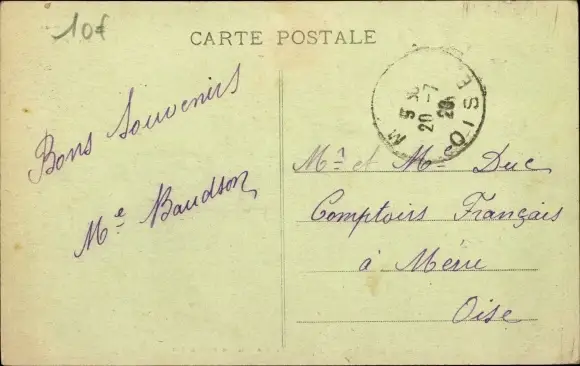 10€
CARTE POSTALE
Bons Souvenirs
Me Baudson
5 30
20-7
28
OISE
Mr et Me Duc
Comptoirs Français
à Méru
Oise